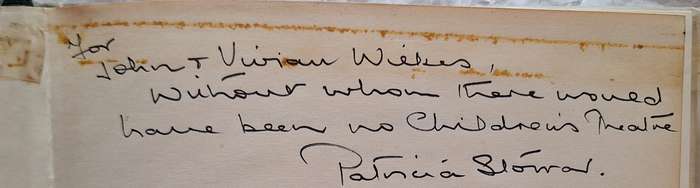 For
John + Vivian Wilkes,
Without whom there would
have been no Children's Theatre
Patricia Storrar.